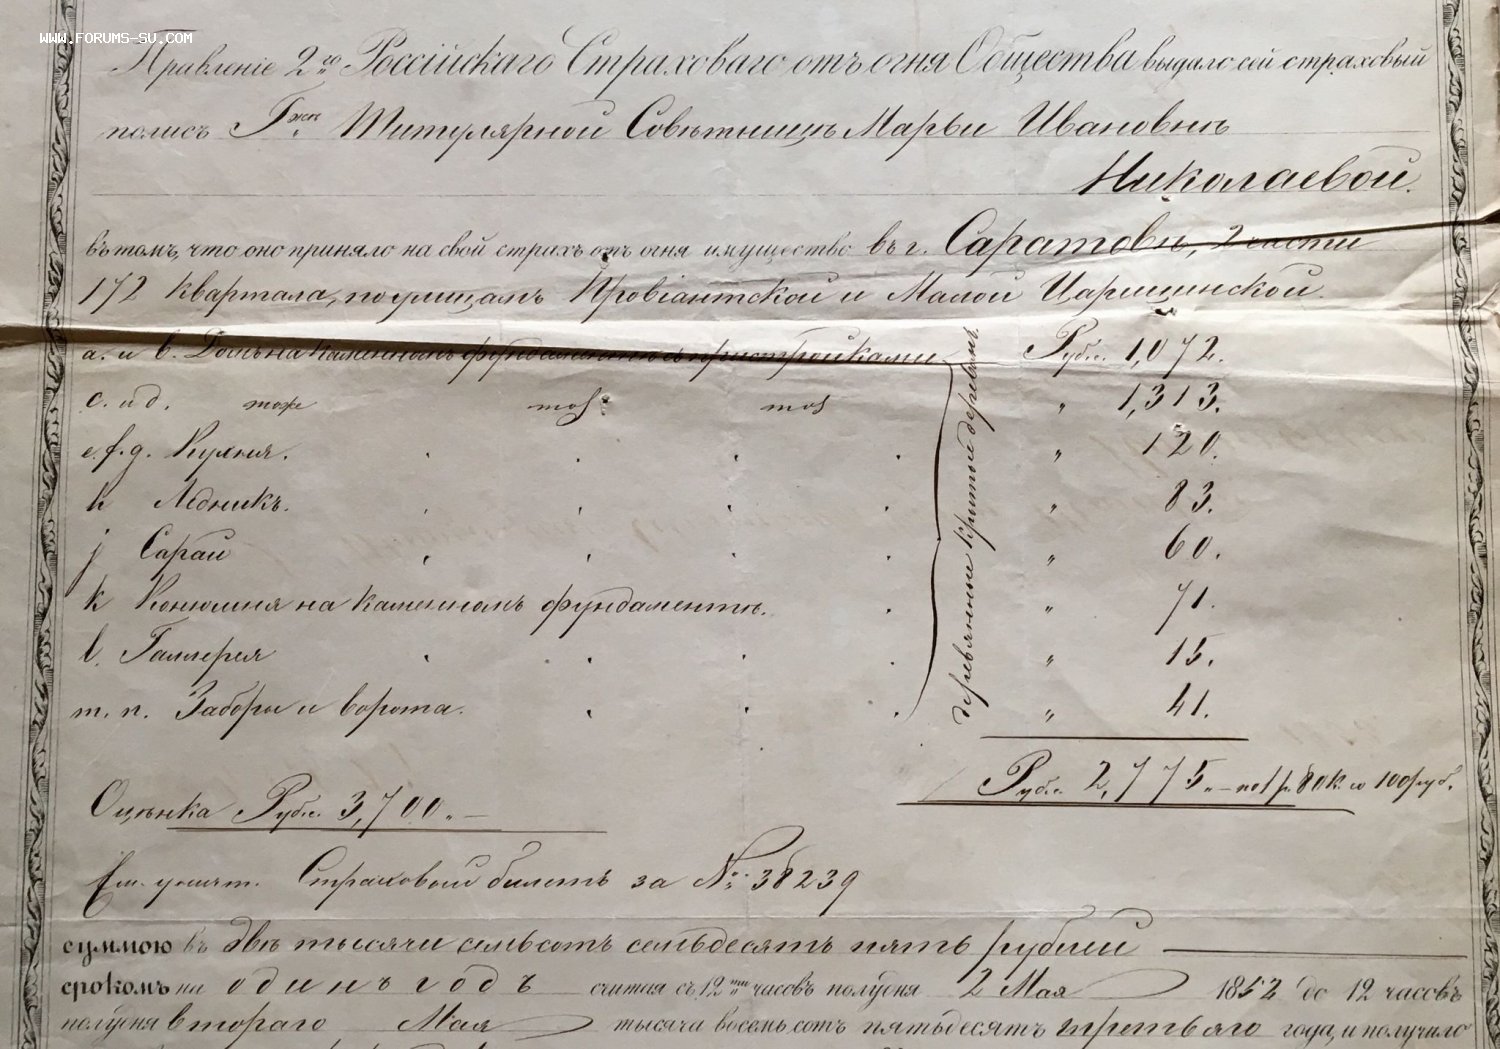 WWW.FORUMS-SU.COM
Правленіе 2го Россійскаго Страховаго отъ огня Общества выдало сей страховый
полисъ Гжѣ Титулярной Совѣтницѣ Марьи Ивановнѣ
Николаевой.
въ томъ, что оно приняло на свой страхъ отъ огня имущество въ г. Саратовѣ, 2 части
172 квартала, по улицамъ Провіантской и Малой Царицинской.
а. и b. Домъ на каменномъ фундаментѣ съ пристройками Рубл. 1,072.
c. и d. тоже тож тож " 1,313.
e. f. g. Кухня. " 120.
h Ледникъ. " 83.
j Сараи " 60.
k Конюшня на каменномъ фундаментѣ. " 71.
l. Галлерея " 15.
m. n. Заборы и ворота. " 41.
деревянные крытые деревомъ.
Рубл. 2,775. — по 1 р. 80 к. со 100 руб.
Оцѣнка Рубл. 3,700. —
Страховой билетъ за №: 38239
суммою въ двѣ тысячи семьсотъ семьдесятъ пять рублей
срокомъ на одинъ годъ считая съ 12ти часовъ полудня 2 Мая 1852 до 12 часовъ
полудня втораго Мая тысяча восемьсотъ пятьдесятъ третьяго года, и получило